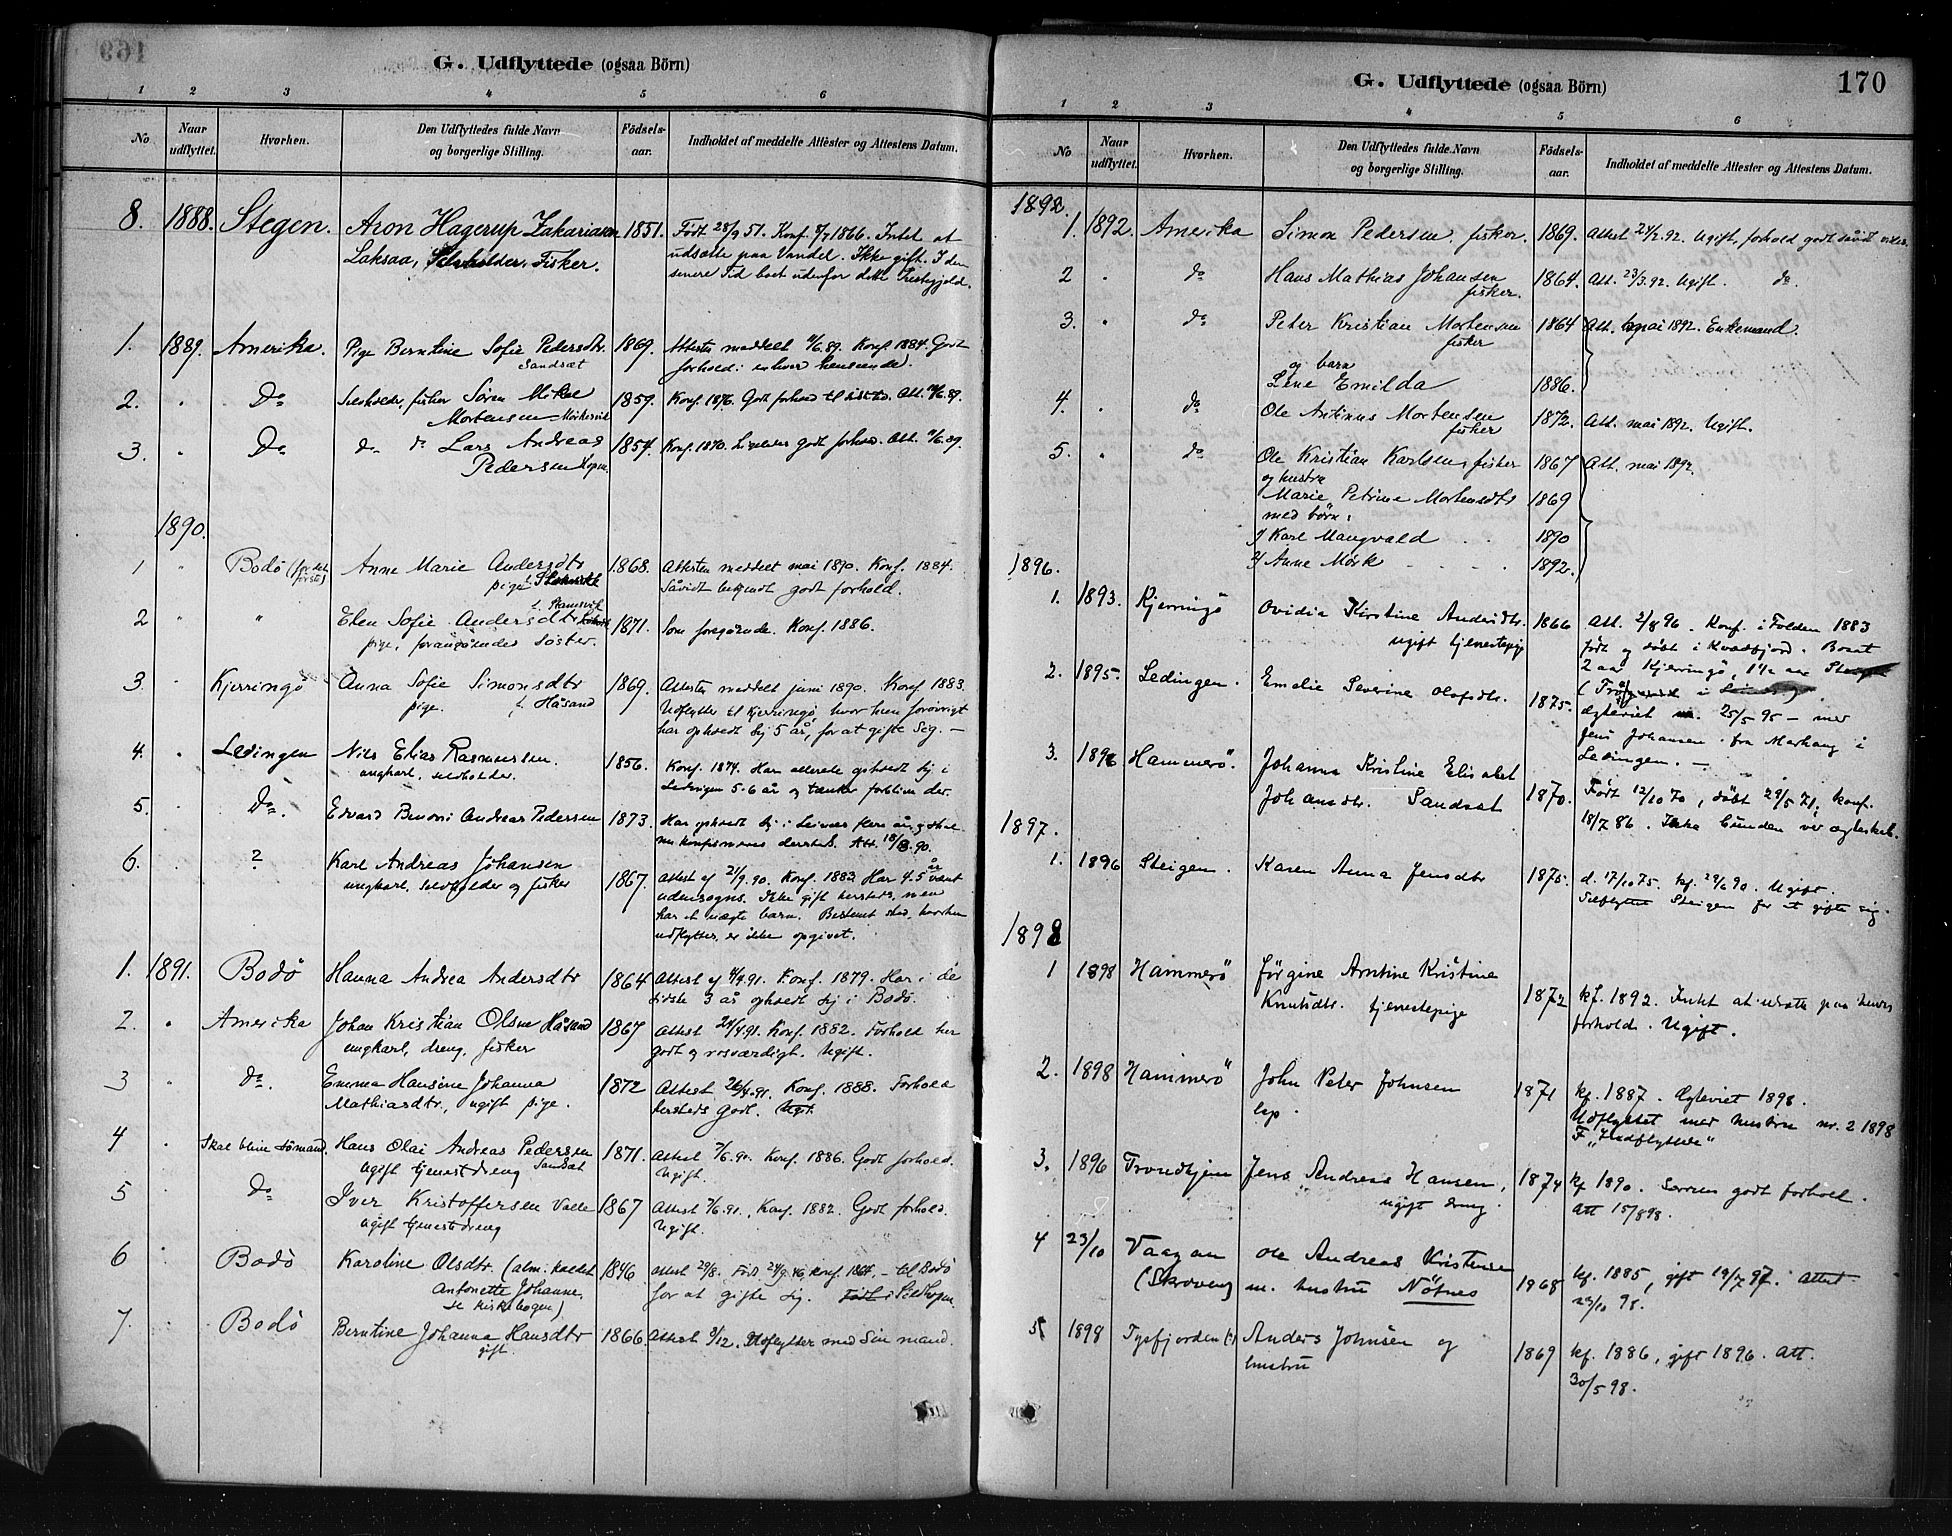 G. Udflyttede (ogsaa Börn)
1 2 3 4 5 6
No. Naar udflyttet. Hvorhen. Den Udflyttedes fulde Navn og borgerlige Stilling. Födsels-aar. Indholdet af meddelte Attester og Attestens Datum.
8. 1888. Stegen. Aron Hagerup Zakariasen 1851. Født 28/9 51. Konf. 8/7 1866. Intet at
Laksaa, Selvholder, Fisker. udsætte paa Vandel. Ikke gift. I den
senere Tid boet udenfor dette Præstegjeld.
1. 1889. Amerika. Pige Berntine Sofie Pedersdtr. 1869. Attester meddelt 4/6 89. Konf. 1884. Godt
Sandsæt forhold i enhver henseende.
2. " Do Selvholder, fisker Sören Mikal 1859. Konf. 1876. Godt forhold til sidst. Att. 4/6 89.
Mortensen Mörkesvik
3. " Do do do Lars Andreas 1854. Konf. 1870. Ligeledes godt forhold. Att. 4/6 89.
Pedersen Hopen
1890.
1 " Bodö (for det første) Anne Marie Andersdtr 1868. Attesten meddelt mai 1890. Konf. 1884.
pige Såvidt bekjendt godt forhold.
2 " " Elen Sofie Andersdtr 1871. Som foregående. Konf. 1886.
f. Stamsvik
pige, forangående's söster.
3 " Kjerringö Anna Sofie Simonsdtr 1869. Attester meddelt juni 1890. Konf 1883.
pige. f. Håsand Udflytter til Kjerringö, hvor hun forövrigt
har opholdt sig 5 år, for at gifte sig. —
4. " Lödingen Nils Elias Rasmussen. 1856. Konf. 1874. Han allerede opholdt sig i
ungkarl, selvholder. Lödingen 5-6 år og tænker forblive der.
5. " Do. Edvard Benoni Andreas Pedersen 1873. Har opholdt sig i flere år og skal
nu konfirmeres dersteds. Att. 18/8 90.
6. ? Karl Andreas Johansen 1867. Attest af 21/9. 90. Konf. 1883 Har 4.5 år været
ungkarl, selvholder og fisker udensogns. Ikke gift hersteds, men
har et uægte barn. Bestemt sted, hvorhen
udflyttes, er ikke opgivet.
1. 1891. Bodö Hanna Andrea Andersdtr 1864 Attest af 4/9. 91. Konf. 1879. Har i de
sidste 3 år opholdt sig i Bodö.
2. " Amerika Johan Kristian Olsen Håsand 1867 Attest 24/4 91. Konf. 1882. Forhold her
ungkarl, dreng, fisker godt og rosværdigt. Ugift.
3 " Do. Emma Hansine Johanna 1872 Attest 26/4. 91. Konf. 1888. Forhold
Mathiasdtr, ugift pige. hersteds godt. Ugt.
4 " Skal blive sömand. Hans Olai Andreas Pedersen 1871. Attest 7/6. 91. Konf. 1886. Godt forhold.
ugift tjenestdreng Sandsæt Ugift.
5 " Do Iver Kristoffersen Valle 1867 Attest 7/6. 91. Konf. 1882. Godt forhold.
ugift tjenestdreng Ugift.
6 " Bodö Karoline Olsdtr. (alm. kaldet 1846 Attest 29/8. Född 24/9. 46, konf. 1864. — til Bodö
Antonette Johanne, for at gifte sig.
se kirkebogen)
7. " Bodö Berntine Johanna Hansdtr 1866. Attest 9/12. Udflytter med sin mand.
gift.
G. Udflyttede (ogsaa Börn) 170
1 2 3 4 5 6
No. Naar udflyttet. Hvorhen. Den Udflyttedes fulde Navn og borgerlige Stilling. Födsels-aar. Indholdet af meddelte Attester og Attestens Datum.
1892.
1. 1892. Amerika Simon Pedersen, fisker. 1869. Attest 24/2. 92. Ugift, forhold godt såvidt vides.
2 " do Hans Mathias Johansen 1864. Att. 23/3. 92. Ugift. do.
fisker.
3. " do Peter Kristian Mortensen 1864 Att. mai 1892. Enkemand.
fisker
og barn
Lene Emilda 1886.
4. " do Ole Antinus Mortensen 1872. Att. mai 1892. Ugift.
fisker
5. " do Ole Kristian Karlsen, fisker 1867 Att. mai 1892.
og hustru
Marie Petrine Mortensdtr 1869
med börn:
1) Karl Mangvald 1890
2) Anne Mörk 1892.
1896.
1. 1893. Kjerringö Ovidia Kirstine Andersdtr. 1866 Att. 2/8 96. Konf. i Folden 1883
ugift tjenestepige født og döbt i Kvædfjord. Boet
2 aar Kjerringö, 1½ aar
2. 1895. Lödingen. Emelie Severine Olofsdtr. 1875.
ægteviet 25/5 95 — med
Jens Johansen fra i
Lödingen. —
3. 1896 Hammerö. Johanna Kristine Elisabet
Johansdtr. Sandsæt 1870. Født 12/10 70, döbt 29/5 71, konf.
18/7 86. Ikke bunden ved ægteskab.
1897.
1. 1896 Steigen. Karen Anna Jensdtr 1875. d. 17/10 75. kf. 29/6 90. Ugift.
Udflyttet Steigen for at gifte sig.
1898
1 1898 Hammerö Jörgine Arntine Kristine
Knutsdtr. tjenestepige 1872 kf. 1892. Intet at udsætte paa hendes
forhold. Ugift.
2. 1898 Hammerö John Peter Johnsen 1871 kf. 1887. Ægteviet 1898.
lap. Udflyttet med hustru nr. 2 1898
F "Indflyttede"
3. 1896 Trondhjem Jens Andreas Hansen, 1874 kf. 1890. godt forhold.
ugift dreng. Att 15/8 98.
4 23/10 Vaagan Ole Andreas Kristensen
(Skroven) m. hustru Nötnes 1868 kf. 1885, gift 19/7 97. Attest
23/10 98.
5. 1898 Tysfjorden (?) Anders Johnsen og 1869 kf. 1886, gift 1896. Att.
hustru 30/5 98.